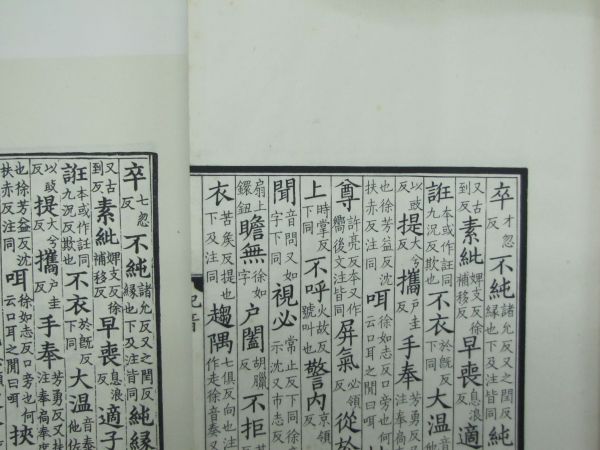 卒才忽反不純諸允反又之閏反緣也下及注皆同純
又古到反素紕婢支反徐補移反早喪息浪反適
誑本或作註同九況反欺也不衣於既反下同大温音泰
以豉反提大兮反攜户圭反手奉芳勇反又注奉扃
也徐芳益反沈扶赤反注同咡徐如志反口旁也何云口耳之閒曰咡
尊許亮反本又作嚮後文注皆同屏氣必領反從於
上時掌反下同不呼火故反號叫也警内京領反
聞音問又如字下同視必常止反下同徐示沈又市志反
扇上鐶鈕瞻無字户闔胡臘反不拒
衣苦矦反提也下及注同趨隅七俱反向也注作走徐音奏又
卒七忽反不純諸允反又之閏反緣也下及注皆同純緣
又古到反素紕婢支反徐補移反早喪息浪反適子
誑本或作註同九況反欺也不衣於既反下同大温音泰他佐
以豉反提大兮反攜户圭反手奉芳勇反又扶注奉扃奉
也徐芳益反沈扶赤反注同咡徐如志反口旁也何云口耳之閒曰咡挾